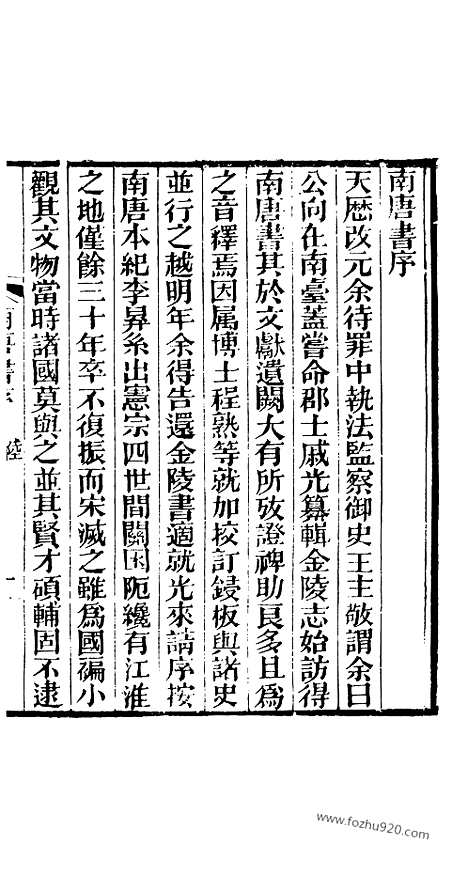 南唐書序
天厯改元余待罪中執法監察御史王主敬謂余曰
公向在南臺蓋嘗命郡士戚光纂輯金陵志始訪得
南唐書其於文獻遺闕大有所攷證裨助良多且爲
之音釋焉因属博士程熟等就加校訂鋟板與諸史
並行之越明年余得告還金陵書適就光來請序按
南唐本紀李昪系出憲宗四世間關困阨纔有江淮
之地僅餘三十年卒不復振而宋滅之雖爲國褊小
觀其文物當時諸國莫與之並其賢才碩輔固不逮
陸
一
www.fozhu920.com